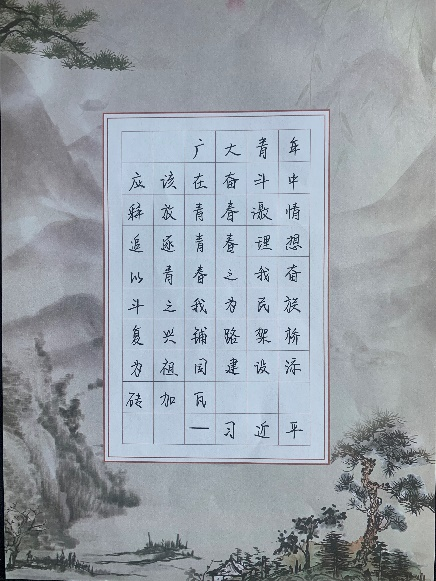 广大青年
应该在奋斗中
释放青春激情
追逐青春理想
以青春之我奋
斗之我为民族
复兴铺路架桥
为祖国建设添
砖加瓦
—习近平